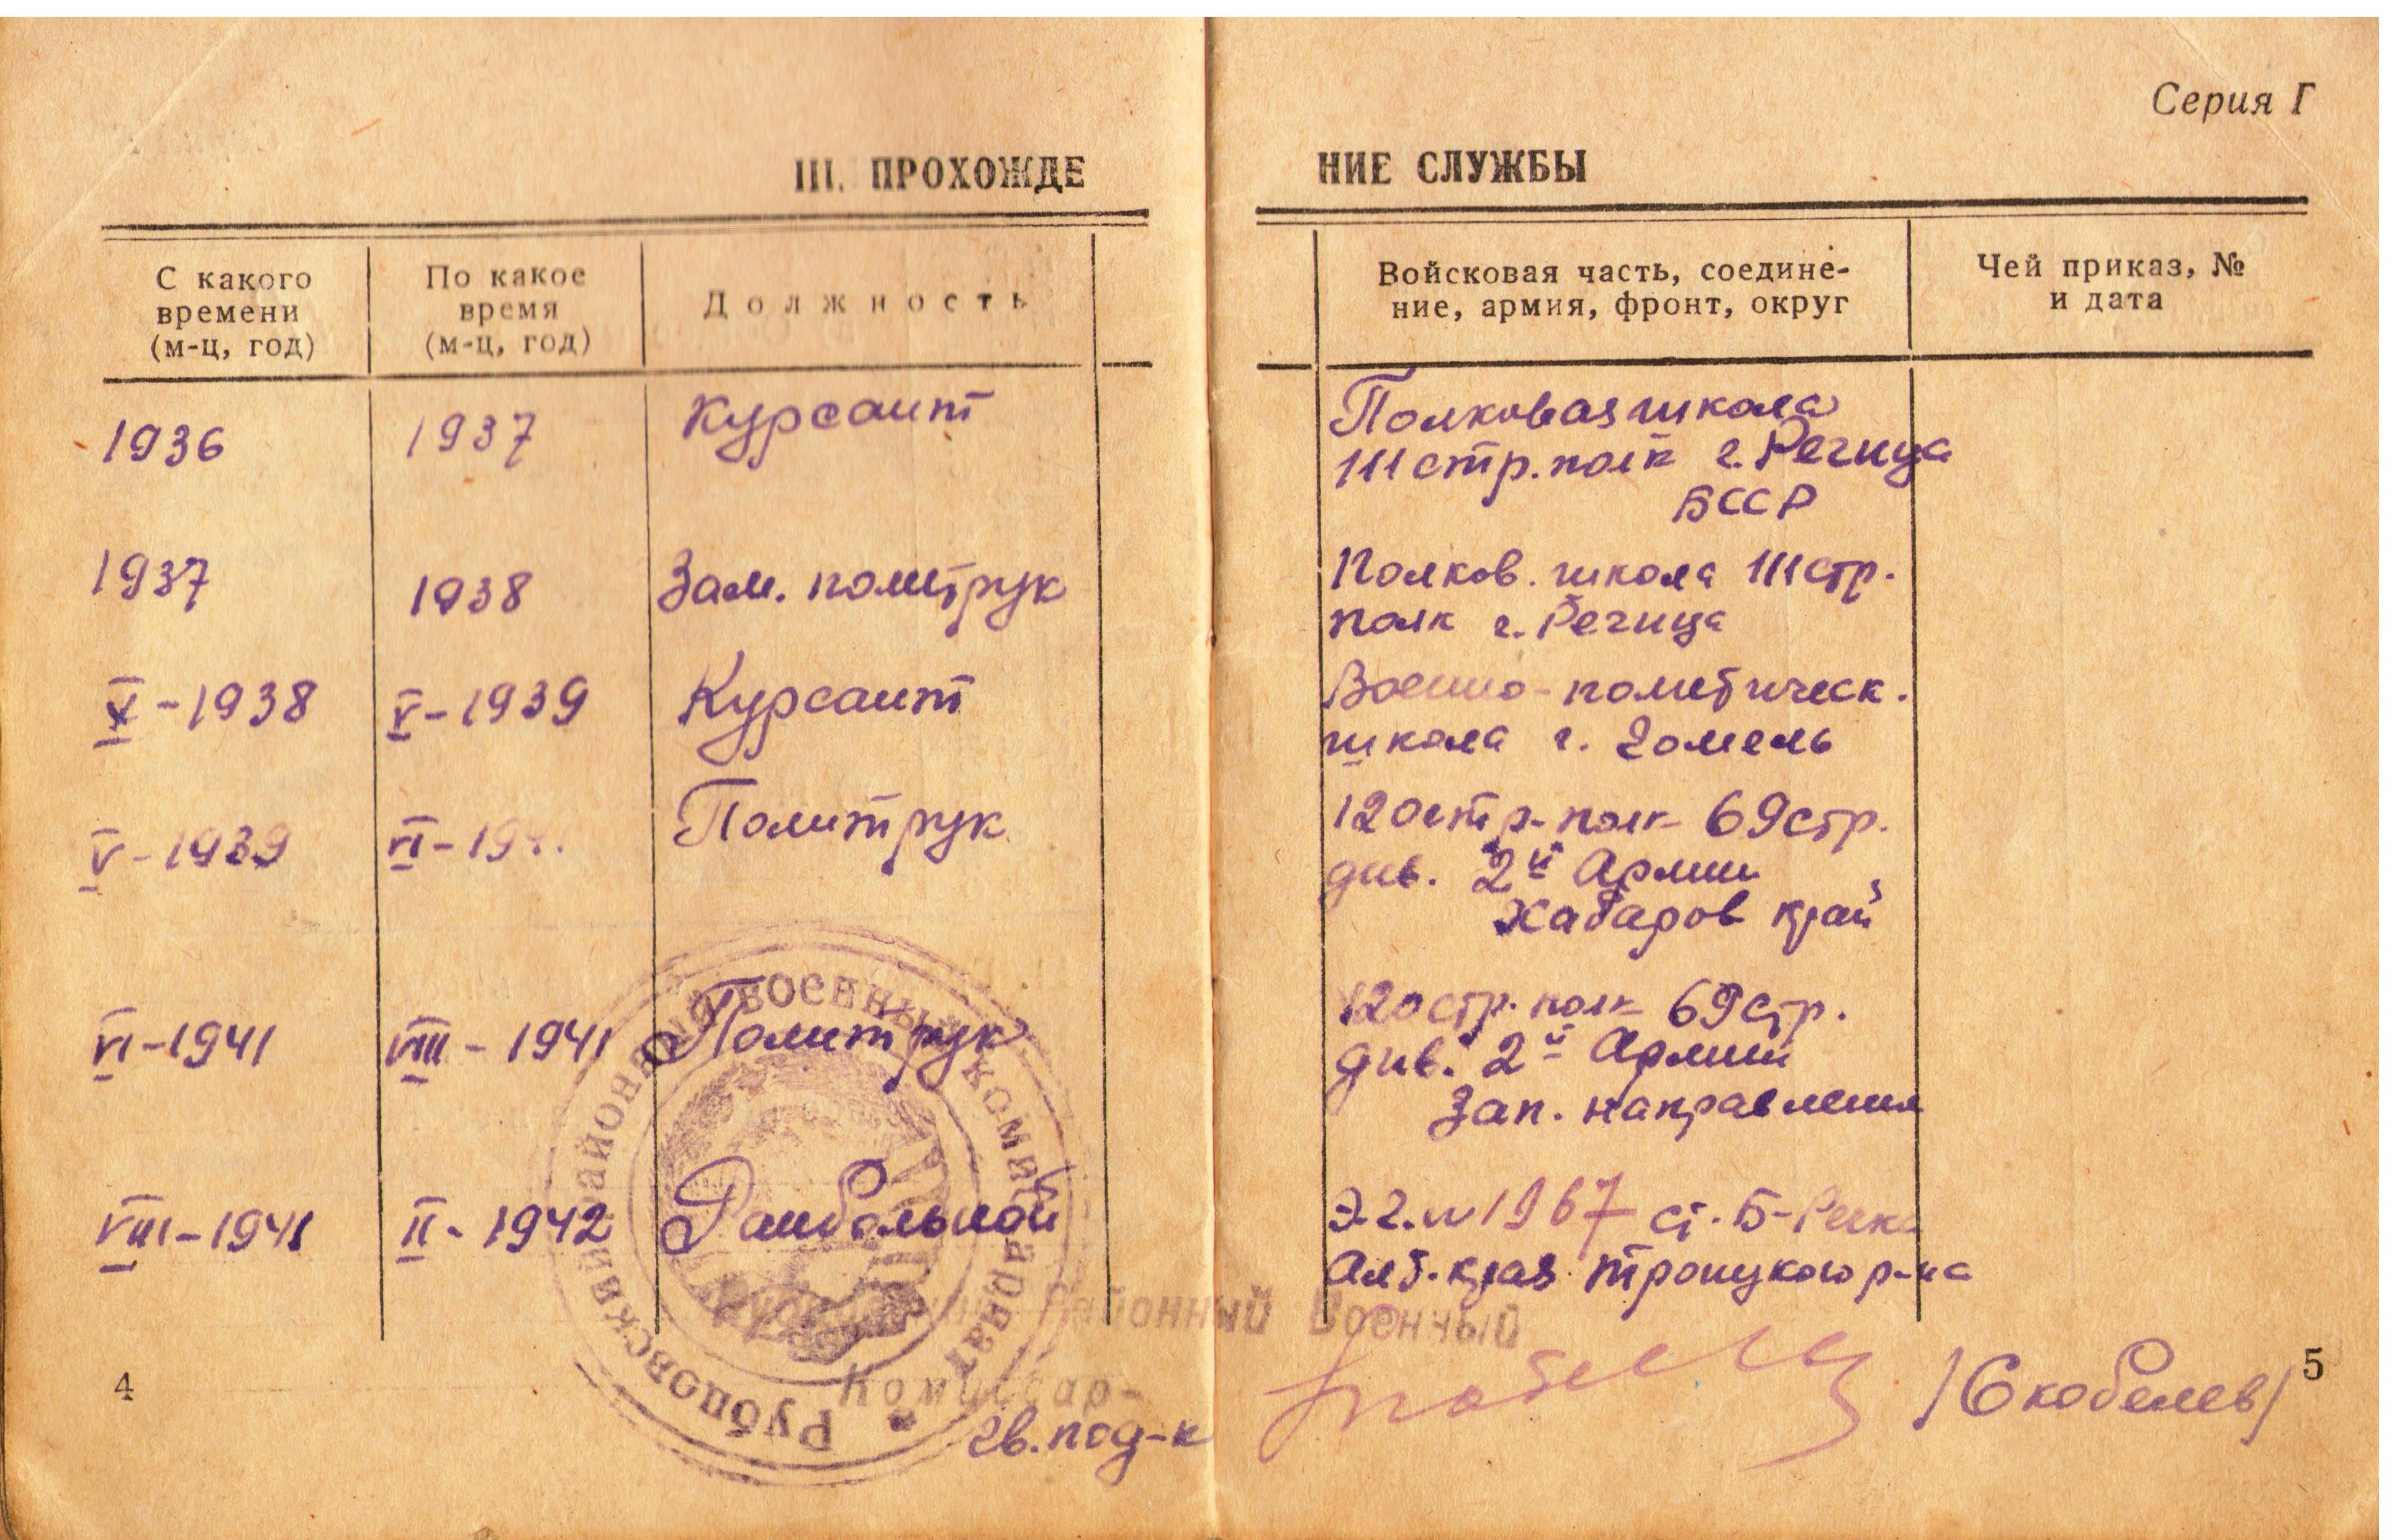 Серия Г
III. ПРОХОЖДЕ НИЕ СЛУЖБЫ
С какого времени (м-ц, год)
По какое время (м-ц, год)
Должность
Войсковая часть, соедине-
ние, армия, фронт, округ
Чей приказ, №
и дата
1936 1937 Курсант Полковая школа
111 стр. полк г. Речица
БССР
1937 1938 Зам. политрук Полков. школа 111 стр.
полк г. Речица
X-1938 V-1939 Курсант Военно-политическ.
школа г. Гомель
V-1939 VI-19 Политрук 120 стр. полк 69 стр.
див. 2й Армии
Хабаров край
VI-1941 VIII-1941 Политрук 120 стр. полк 69 стр.
див. 2й Армии
Зап. направления
VIII-1941 II-1942 Ранбольной Э.Г. № 1967 ст. Б-Речка
Алт. края Троицкого р-на
Рубцовский районный военный комиссариат
Рубцовский Районный Военный
Комиссар-
гв. под-к /Скобелев/
4
5